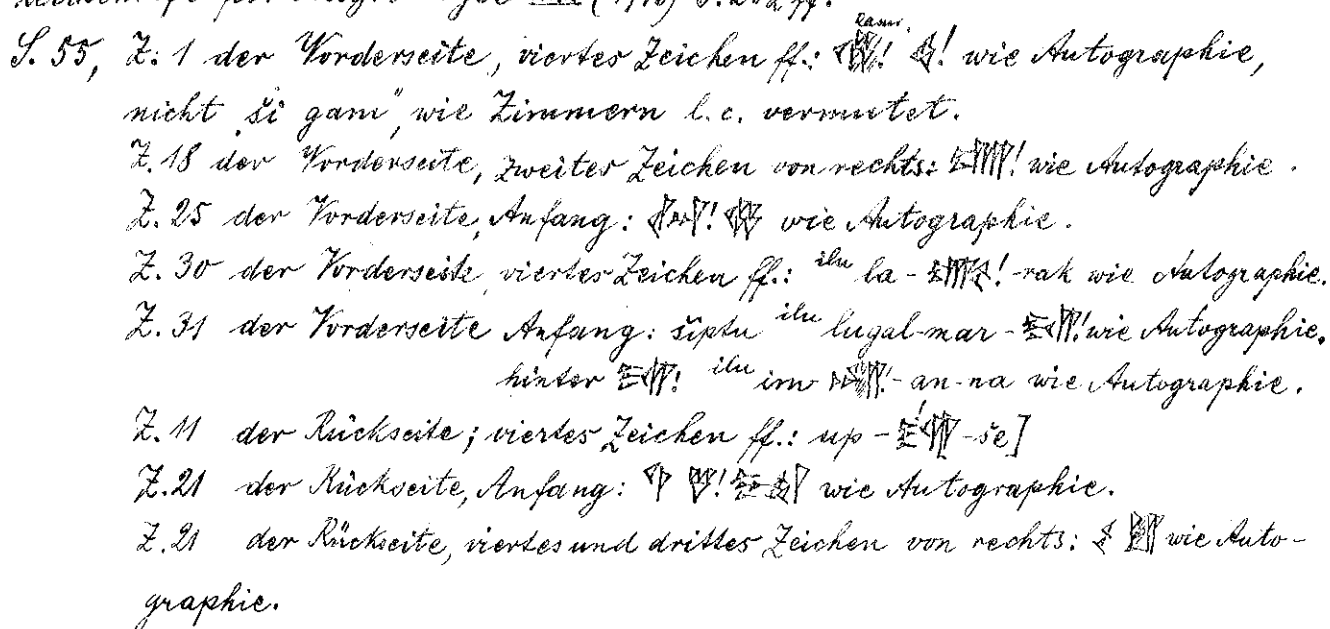 Zeitschrift für Assyriologie (1916) S.
S. 55, Z. 1 der Vorderseite, viertes Zeichen ff.: ! ! wie Autographie,
nicht „ši gam“, wie Zimmern l. c. vermutet.
Z. 18 der Vorderseite, zweites Zeichen von rechts: ! wie Autographie.
Z. 25 der Vorderseite, Anfang: ! wie Autographie.
Z. 30 der Vorderseite, viertes Zeichen ff.: ilu la- !-rak wie Autographie.
Z. 31 der Vorderseite Anfang: šiptu ilu lugal-mar- ! wie Autographie.
hinter ! ilu im !-an-na wie Autographie.
Z. 11 der Rückseite; viertes Zeichen ff.: up- -še]
Z. 21 der Rückseite, Anfang: ! wie Autographie.
Z. 21 der Rückseite, viertes und drittes Zeichen von rechts: wie Auto-
graphie.